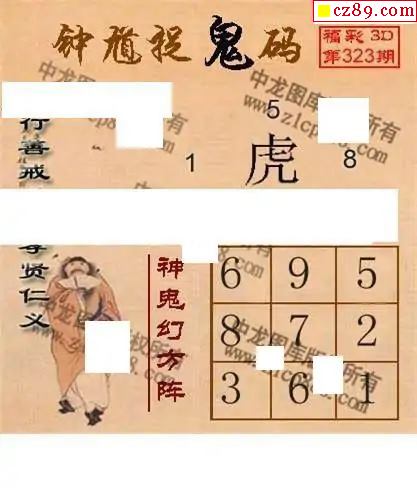 cz89.com
钟馗捉鬼码
福彩3D
第323期
行善戒
5
1
虎
8
尊贤仁义
神鬼幻方阵
6 9 5
8 7 2
3 6 1
中龙图库版权所有
www.zlcp88.com